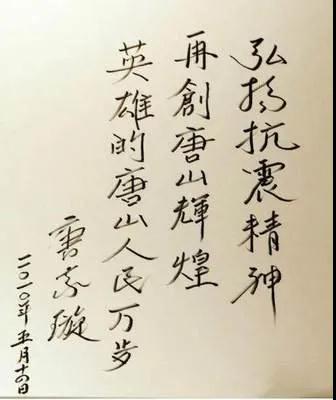 弘扬抗震精神
再創唐山輝煌
英雄的唐山人民万岁
唐家璇
二〇一〇年五月十四日